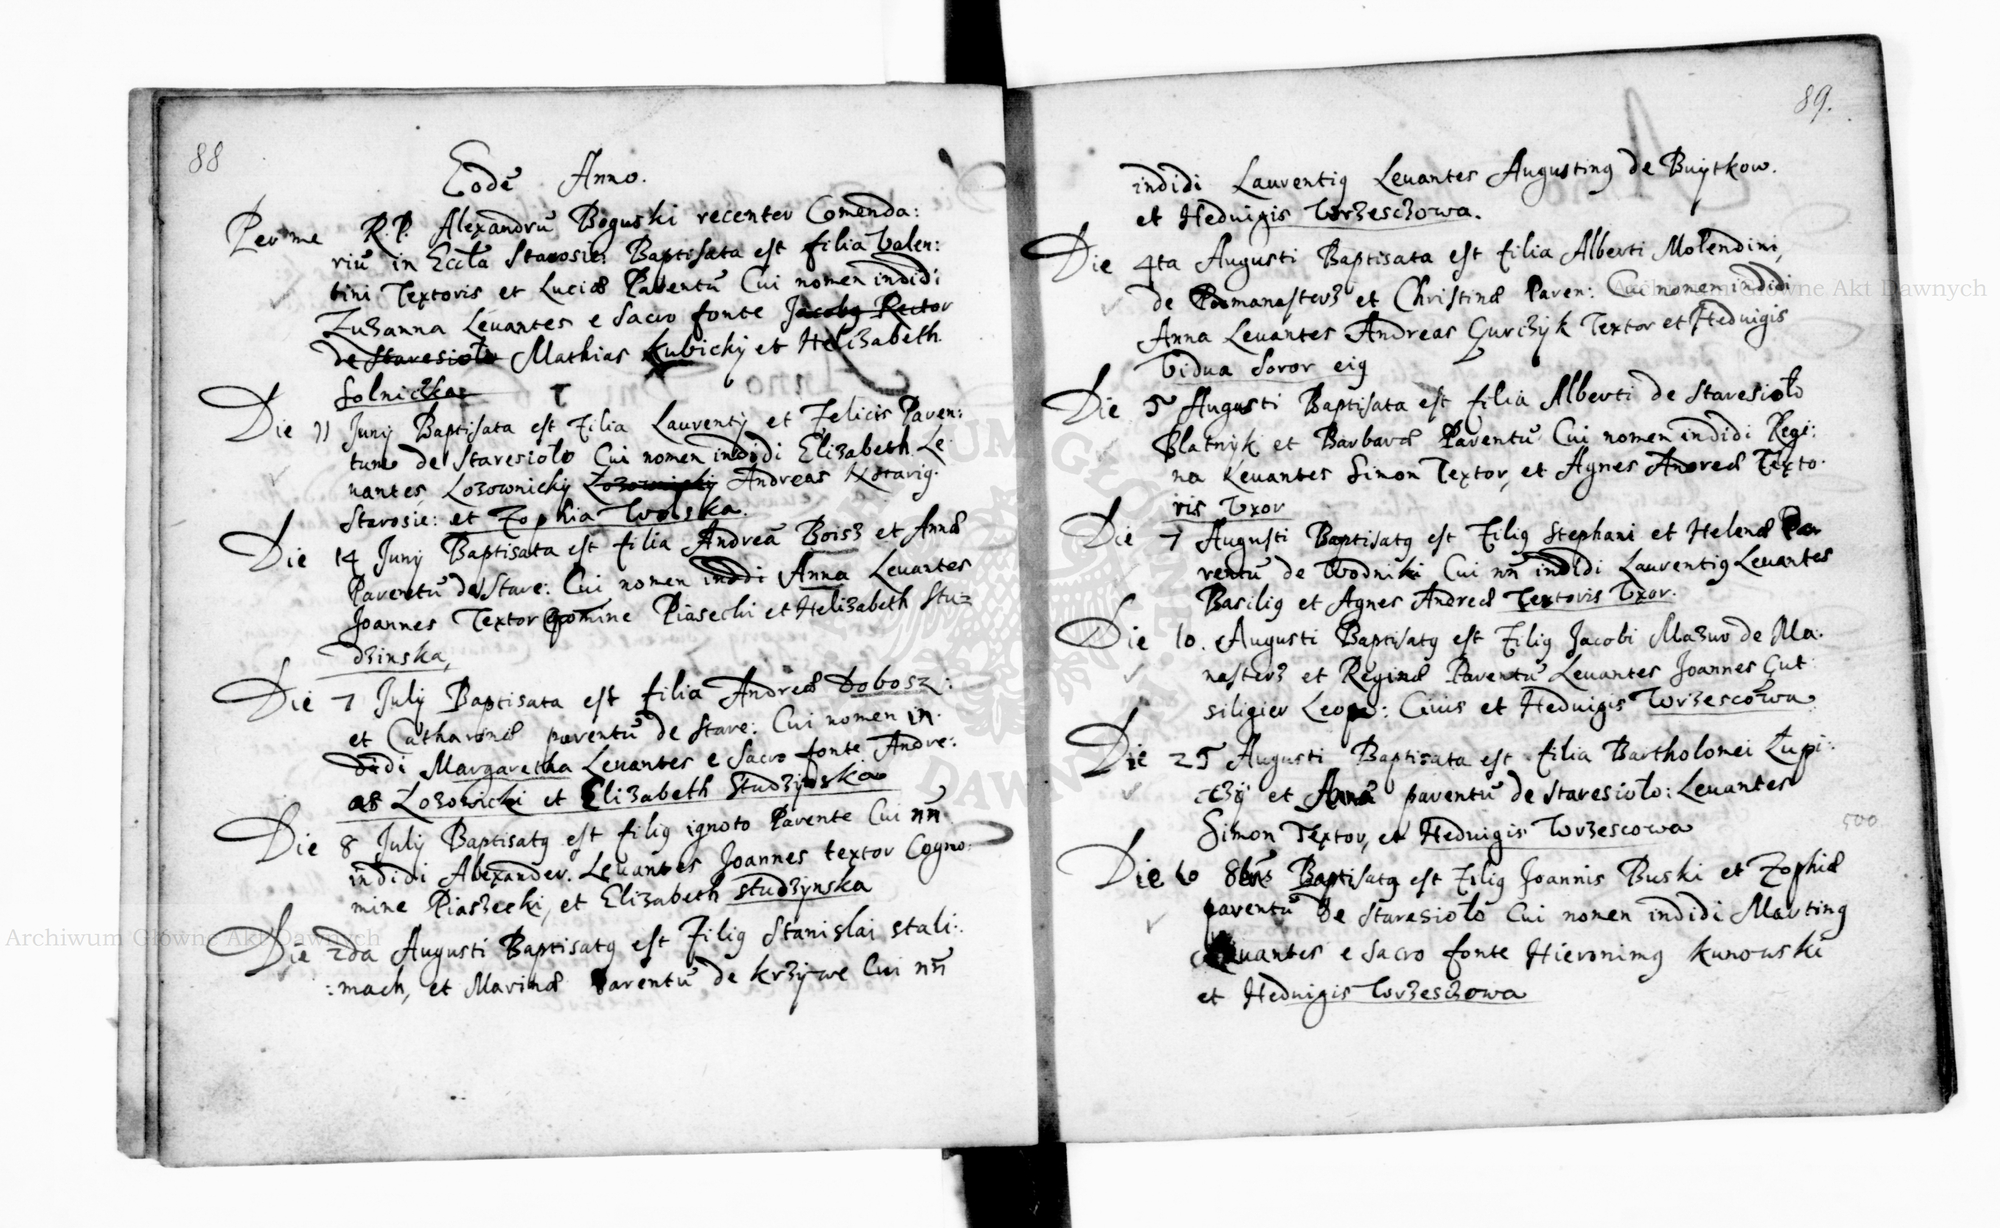 88
Eodē Anno.
Per me R. P. Alexandrū Boguski recenter Comenda:
riū in Eccła Starosie: Baptisata est filia Valen:
tini Textoris et Luciæ Parentū Cui nomen indidi
Zuzanna Levantes e Sacro fonte Jacobg Rector
de Staresioło Mathias Kubicky et Helizabeth
Solniczka
Die 11 Juny Baptisata est Filia Laurenty et Felicis Paren:
tum de Staresioło Cui nomen indidi Elizabeth Le
vantes Lozownicky Andreas Notarig
Starosie: et Zophia Wolska.
Die 14 Juny Baptisata est filia Andreā Boisz et Annæ
Parentū de Stare: Cui nomen indidi Anna Levantes
Joannes Textor Cognomine Piasecki et Helizabeth Stu=
dzinska,
Die 7 July Baptisata est filia Andreæ Dobosz:
et Catharinæ parentū de Stare: Cui nomen in
didi Margaretha Levantes e Sacro fonte Andre:
as Lozowicki et Elizabeth Studzynska
Die 8 July Baptisatg est filig ignoto Parente Cui nn̄
indidi Alexander. Levantes Joannes textor Cogno:
mine Piaszecki, et Elizabeth Studzynska
Die 2da Augusti Baptisatg est Filig Stanislai Stali:
:mach, et Marinæ Parentū de Krzywe Cui nn̄
89.
indidi Laurentig Levantes Augusting de Buytkow.
et Heduigis Wrzesczowa.
Die 4ta Augusti Baptisata est filia Alberti Molendini,
de Manasterz et Christinæ Paren: Cui nomen indidi
Anna Levantes Andreas Gurczyk Textor et Heduigis
Vidua Soror eig
Die 5 Augusti Baptisata est filia Alberti de Staresioło
Płatnyk et Barbaræ Parentū Cui nomen indidi Regi:
na Levantes Simon Textor, et Agnes Andreæ Texto
ris Vxor
Die 7 Augusti Baptisatg est Filig Stephani et Helenæ Pa
rentū de Wodniki Cui nn̄ indidi Laurentig Levantes
Basilig et Agnes Andreæ Textoris Vxor.
Die 10. Augusti Baptisatg est Filig Jacobi Mazur de Ma
nasterz et Reginæ Parentū Levantes Joannes Gut
siligier Leopo: Ciuis et Heduigis Wrzescowa
Die 25 Augusti Baptisata est filia Bartholomei Łupi:
czy et Annæ parentū de Staresioło: Levantes
Simon Textor, et Heduigis Wrzescowa
500
Die 10 8bris Baptisatg est Filig Joannis Buski et Zophiæ
parentū de Staresioło Cui nomen indidi Marting
Levantes e Sacro fonte Hieronimg Kunowski
et Heduigis Wrzesczowa
Archiwum Główne Akt Dawnych
Archiwum Główne Akt Dawnych
ARCHIWUM GŁÓWNE AKT DAWNYCH